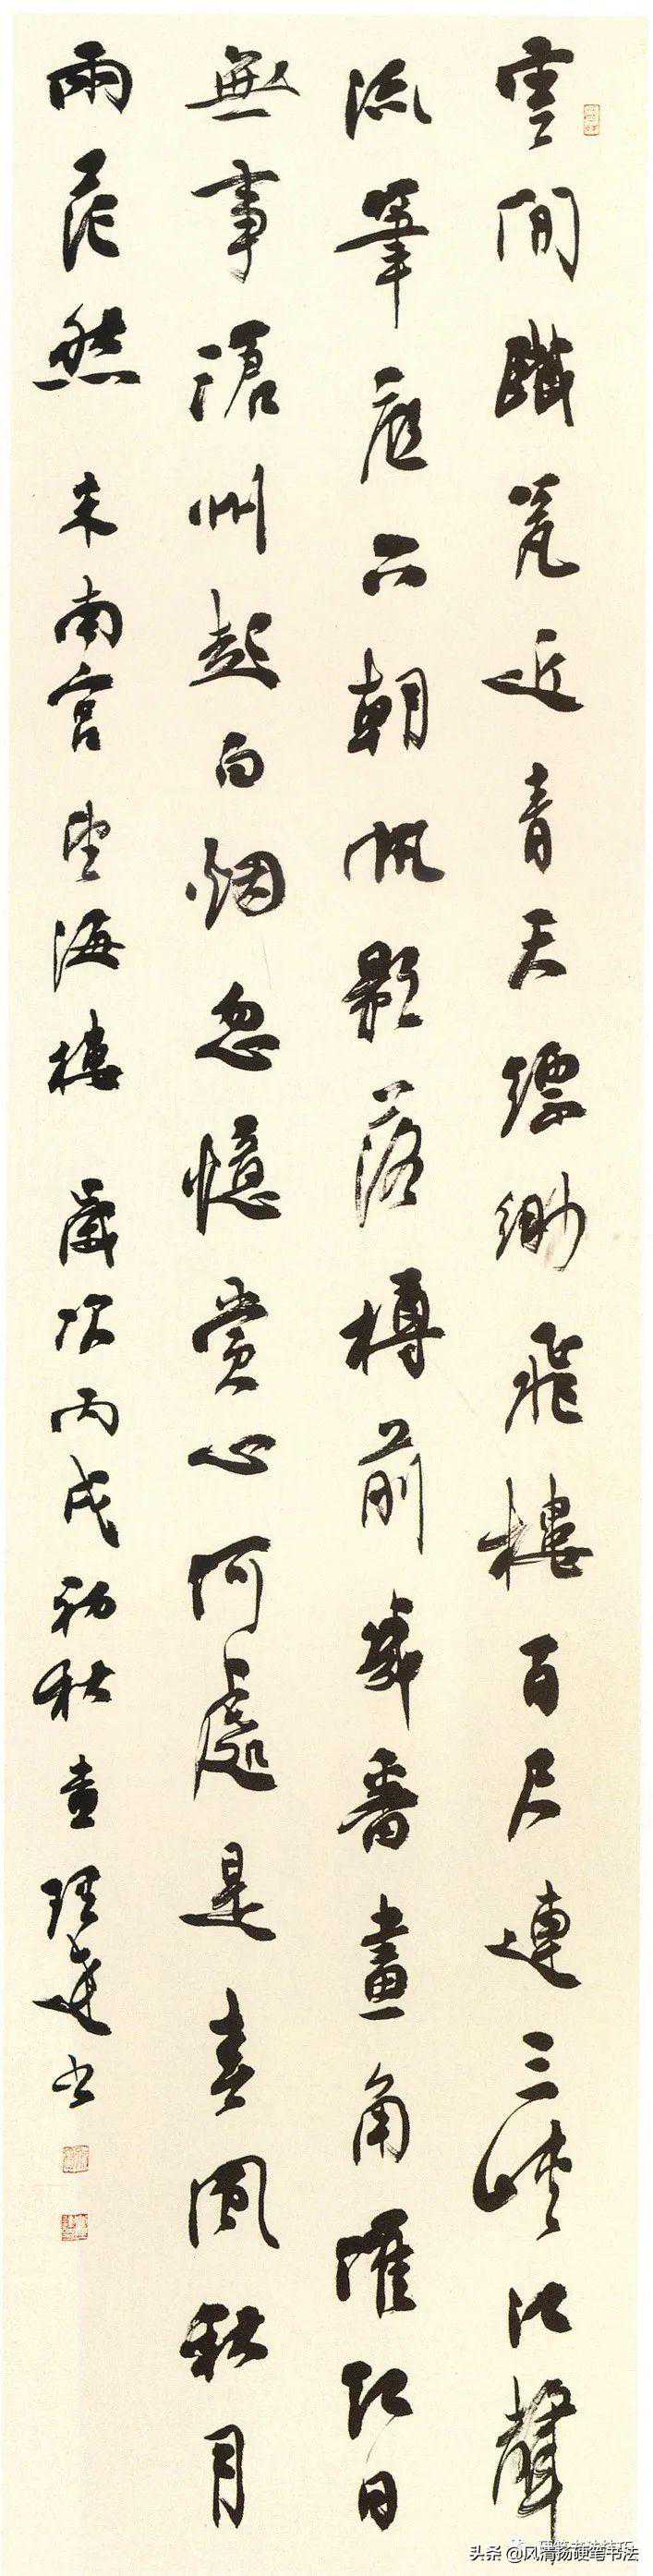 雲間鐵瓮近青天縹緲飛樓百尺連三峽江聲
流筆底六朝帆影落樽前幾番畫角催紅日
無事滄州起白烟忽憶賞心何處是春風秋月
兩茫然 米南宫望海樓 歲次丙戌初秋 书
头条 @风清扬硬笔书法